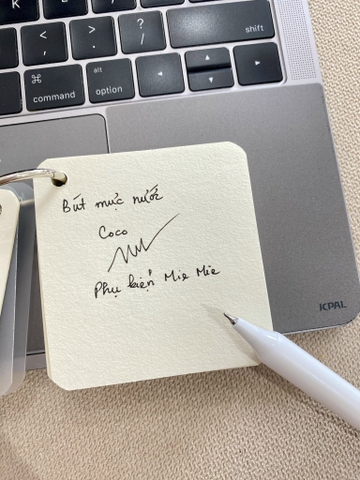 <
,
>
.
?
/
shift
⌘
command
alt
option
◄
▲
▼
►
Bút mực nước
Coco
Phụ kiện Mie Mie
JCPAL